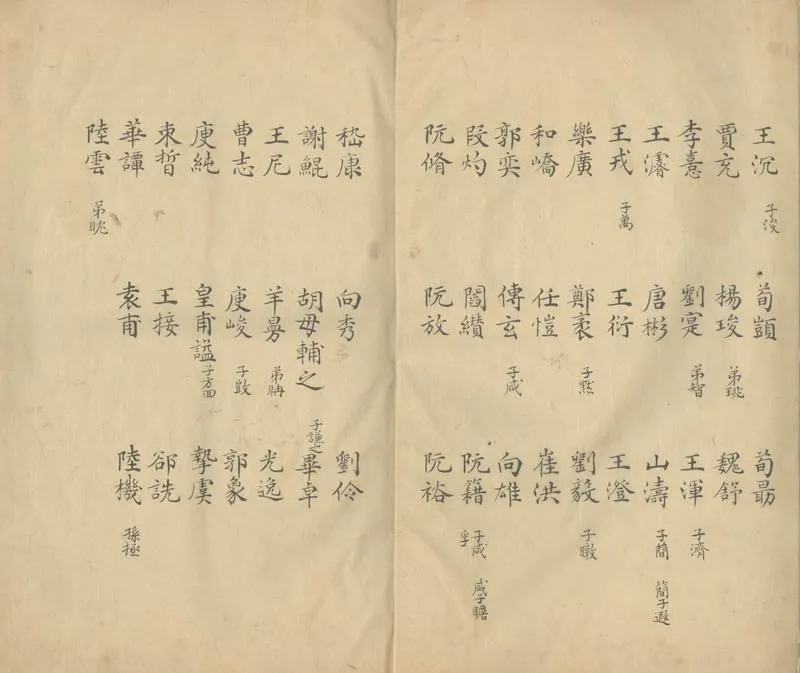 王沉 子浚 荀顗 荀勗
賈充 楊珧 弟珧 魏舒
李憙 劉寔 弟智 王渾 子濟
王濬 唐彬 山濤 子簡 簡子遐
王戎 子萬 王衍 王澄
樂廣 鄭袤 子黙 劉毅 子暾
和嶠 任愷 崔洪
郭奕 傅玄 子咸 向雄
段灼 閻纘 阮籍 子咸 咸子瞻 孚
阮脩 阮放 阮裕
嵇康 向秀 劉伶
謝鯤 胡毋輔之 子謙之 畢卓
王尼 羊曼 弟聃 光逸
曹志 庾峻 子敳 郭象
庾純 皇甫謐 子方回 摯虞
束晳 王接 郤詵
華譚 袁甫 陸機 孫拯
陸雲 弟眈